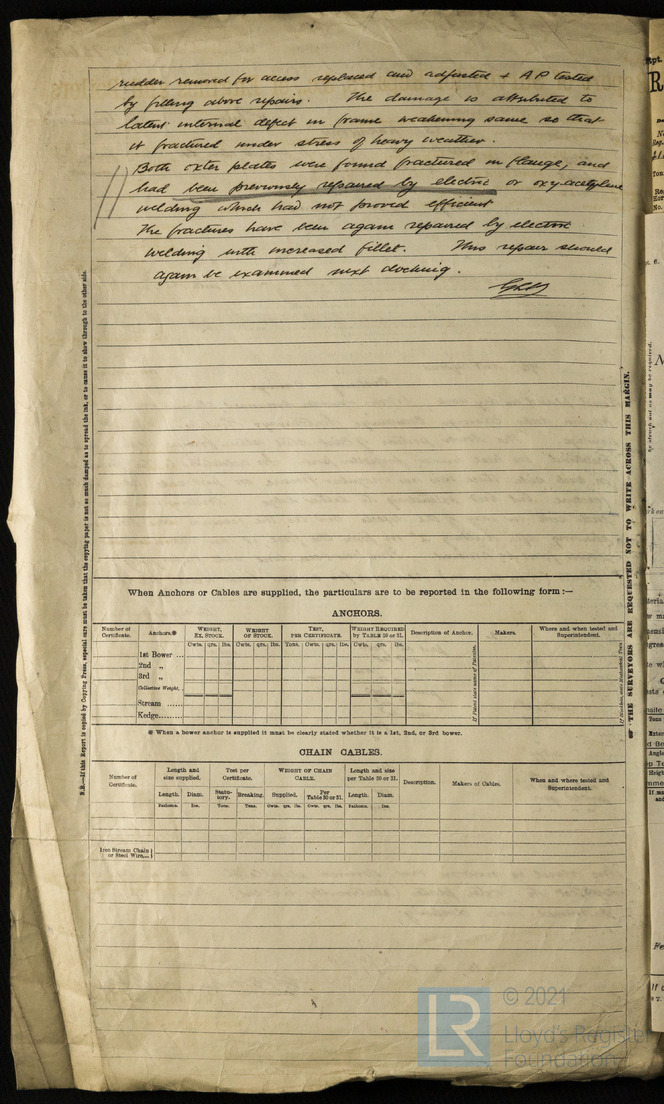 rudder removed for access replaced and adjusted & A P tested
by filling above repairs. The damage is attributed to
latent internal defect in frame weakening same so that
it fractured under stress of heavy weather.
Both oxter plates were found fractured in flange, and
had been previously repaired by electric or oxy-acetylene
welding which had not proved efficient
The fractures have been again repaired by electric
welding with increased fillet. This repair should
again be examined next docking.
When Anchors or Cables are supplied, the particulars are to be reported in the following form :—
ANCHORS.
Number of Certificate. Anchors.* WEIGHT, EX. STOCK. WEIGHT OF STOCK. TEST, PER CERTIFICATE. WEIGHT REQUIRED by TABLE 30 or 31. Description of Anchor. Makers. Where and when tested and Superintendent.
Cwts. qrs. lbs. Cwts. qrs. lbs. Tons. Cwts. qrs. lbs. Cwts. qrs. lbs.
1st Bower ...
2nd „
3rd „
Collective Weight.
Stream ......
Kedge........
* When a bower anchor is supplied it must be clearly stated whether it is a 1st, 2nd, or 3rd bower.
CHAIN CABLES.
Number of Certificate. Length and size supplied. Test per Certificate. WEIGHT OF CHAIN CABLE. Length and size per Table 30 or 31. Description. Makers of Cables. When and where tested and Superintendent.
Length. Diam. Statutory. Breaking. Supplied. Per Table 30 or 31. Length. Diam.
Fathoms. Ins. Tons. Tons. Cwts. qrs. lbs. Cwts. qrs. lbs. Fathoms. Ins.
Iron Stream Chain or Steel Wire...
N.B.—If this Report is copied by Copying Press, especial care must be taken that the copying paper is not so much damped as to spread the ink, or to cause it to show through to the other side.
THE SURVEYORS ARE REQUESTED NOT TO WRITE ACROSS THIS MARGIN.
LR
© 2021
Lloyd's Register
Foundation